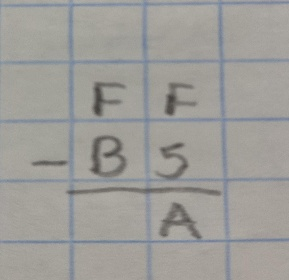 F F
- B 5
A